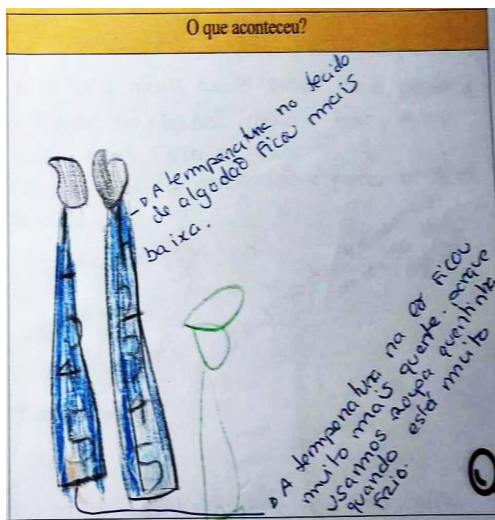 O que aconteceu?
A temperatura no tecido
de algodão ficou mais
baixa.
A temperatura na ficou
muito mais quente. porque
usarmos roupa quentinha
quando está muito
Frio.